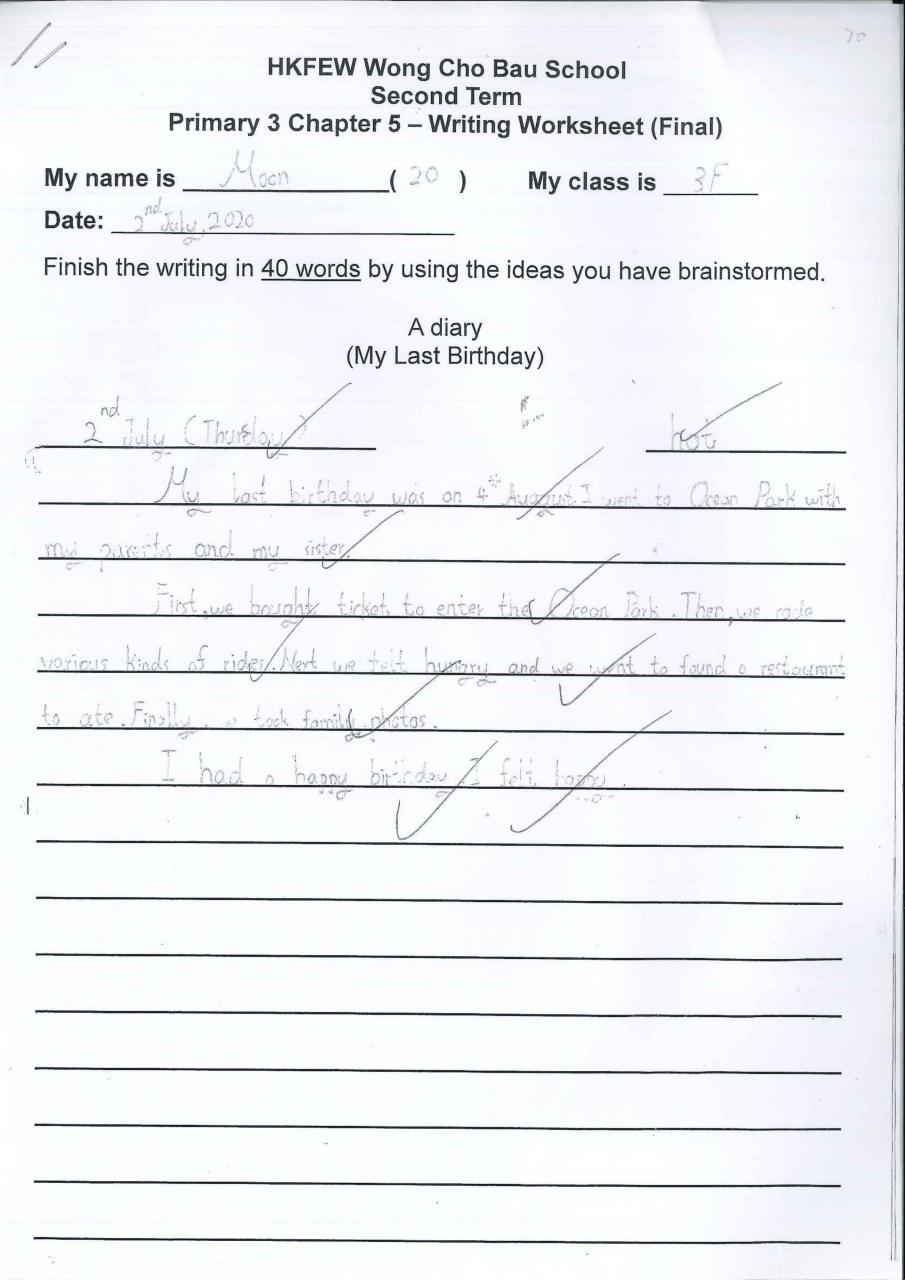 20
HKFEW Wong Cho Bau School
Second Term
Primary 3 Chapter 5 – Writing Worksheet (Final)
My name is Moon ( 20 ) My class is 3F
Date: 2nd July, 2020
Finish the writing in 40 words by using the ideas you have brainstormed.
A diary
(My Last Birthday)
2nd July (Thursday) hot
My last birthday was on 4th August. I went to Ocean Park with
my parents and my sister.
First, we bought ticket to enter the Ocean Park. Then, we rode
various kinds of rides. Next we felt hungry and we went to found a restaurant
to ate. Finally, took family photos.
I had a happy birthday. I felt happy.